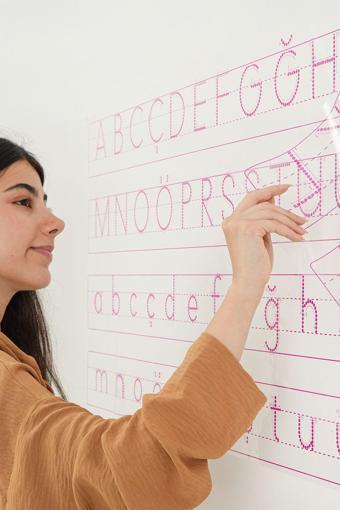 A B C Ç D E F G Ğ H
M N O Ö P R S Ş T U
a b c ç d e f ğ h
m n o ö t u